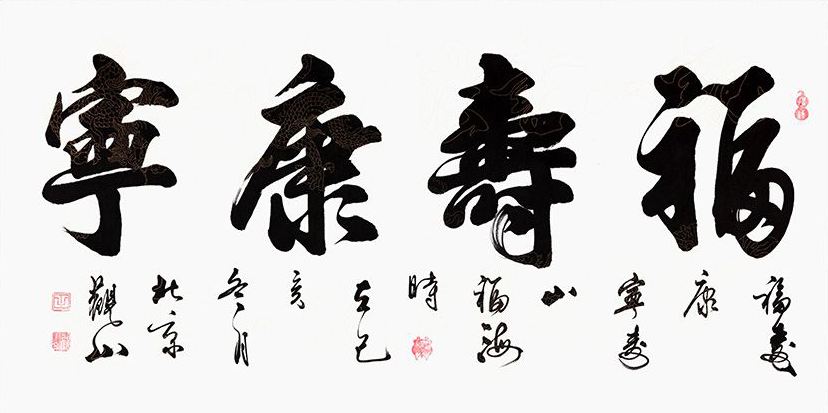 福壽康寧
福壽
康
寧壽
山
福海
時
在己
亥
冬月
北京
觀山